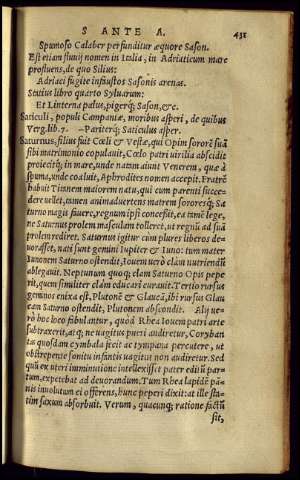 S ANTE A. 431
Spumoso Calaber perfunditur æquore Sason.
Est etiam fluuij nomen in Italia, in Adriaticum mare
profluens, de quo Silius:
Adriaci fugite infaustas Sasonis arenas.
Statius libro quarto Syluarum:
Et Linterna palus, pigerq; Sason, &c.
Saticuli, populi Campaniæ, moribus asperi, de quibus
Verg. lib. 7. -- Pariterq; Saticulus asper.
Saturnus, filius fuit Cœli & Vestæ, qui Opim sororē suā
sibi matrimonio copulauit, Cœlo patri virilia abscidit
proiecitq; in mare, unde natam aiunt Venerem, quæ à
spuma, unde coaluit, Aphrodites nomen accepit. Fratrē
habuit Titanem maiorem natu, qui cum parenti succe-
dere vellet, tamen animaduertens matrem sororesq; Sa
turno magis fauere, regnum ipsi concessit, ea tamē lege,
ne Saturnus prolem masculam tolleret, ut regnū ad suā
prolem rediret. Saturnus igitur cum plures liberos de-
uorasset, nati sunt gemini Iupiter & Iuno: tum mater
Iunonem Saturno ostendit, Iouem verò clam nutriendū
ablegauit. Neptunum quoq; clam Saturno Opis pepe
rit, quem similiter clam educari curauit. Tertio rursus
gemnos enixa est, Plutonē & Glaucā, ibi rursus Glau
cam Saturno ostendit, Plutonem abscondit. Alij ue-
rò hoc loco fabulantur, quòd Rhea Iouem patri arte
subtraxerit, atq; ne uagitus pueri audiretur, Coryban
tas quosdam cymbala fecit ac tympana percutere, ut
obstrepente sonitu infantis uagitus non audiretur. Sed
quū ex uteri imminutione intellexisset pater editū par-
tum, expetebat ad deuorandum. Tum Rhea lapidē pā-
nis inuolutum ei offerens, hunc peperi dixit: at ille sta-
tim saxum absorbuit. Verum, quacunq; ratione factū
sit,